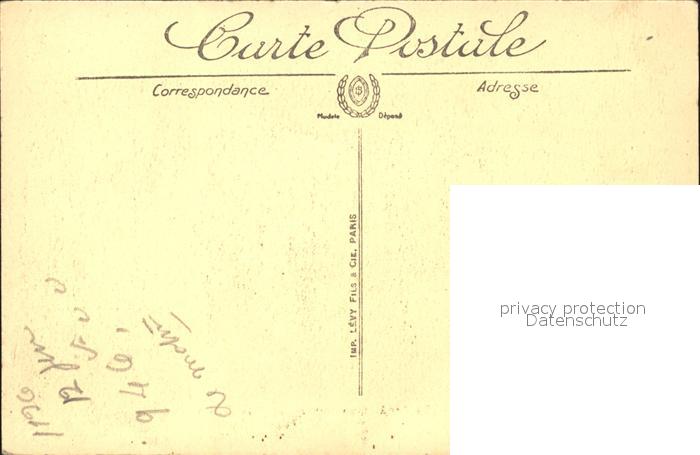 Carte Postale
Correspondance
Adresse
Modèle Déposé
IMP. LÉVY FILS & CIE, PARIS
privacy protection
Datenschutz
946